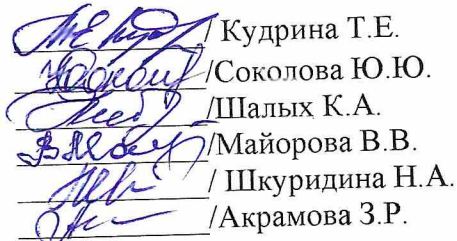 / Кудрина Т.Е.
/Соколова Ю.Ю.
/Шалых К.А.
/Майорова В.В.
/ Шкуридина Н.А.
/Акрамова З.Р.